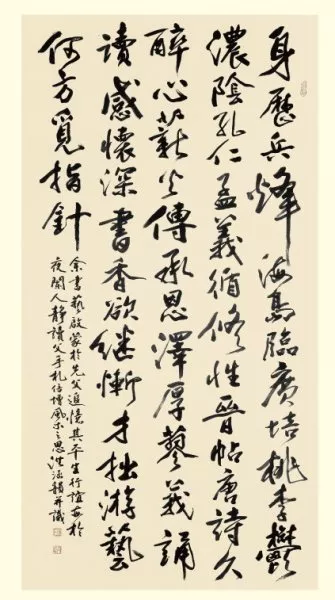 身歷兵烽海島臨廣培桃李鬱
濃陰孔仁孟義循修性晉帖唐詩久
醉心薪火傳承恩澤厚蓼莪誦
讀感懷深書香欲繼慚才拙游藝
何方覓指針
余書藝啟蒙於先父追憶其平生行誼每於
夜闌人靜讀父手札倍增風木之思并識